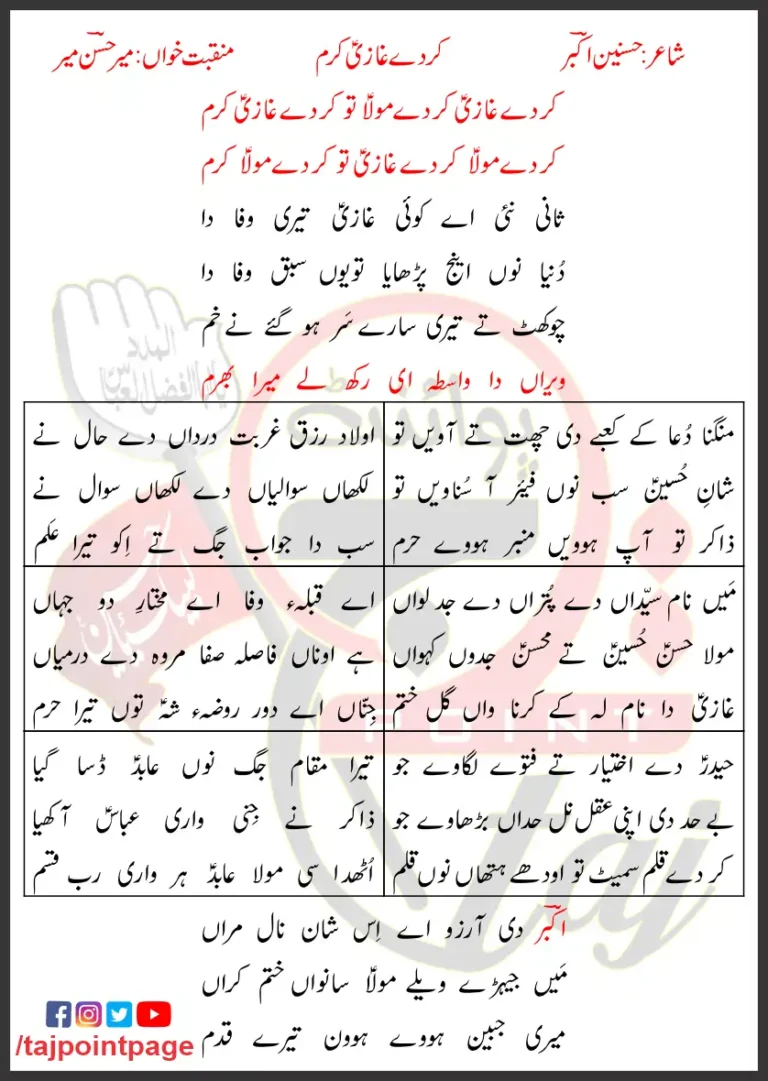 شاعر: حسنین اکبؔر کر دے غازیؑ کرم منقبت خواں: میر حسؔن میر
کر دے غازیؑ کر دے مولاؑ تو کر دے غازیؑ کرم
کر دے مولاؑ کر دے غازیؑ تو کر دے مولاؑ کرم
ثانی نئی اے کوئی غازیؑ تیری وفا دا
دُنیا نوں اینج پڑھایا تویوں سبق وفا دا
چوکھٹ تے تیری سارے سَر ہو گئے نے خم
ویراں دا واسطہ ای رکھ لے میرا بھرم
منگنا دُعا کے کعبے دی چھت تے آویں تو
شانِ حُسینؑ سب نوں فیئر آ سُناویں تو
ذاکر تو آپ ہوویں منبر ہووے حرم
اولاد رزق غربت درداں دے حال نے
لکھاں سوالیاں دے لکھاں سوال نے
سب دا جواب جگ تے اِکو تیرا عَلم
مَیں نام سیّداں دے پُتراں دے جد لواں
مولا حسنؑ حُسینؑ تے محسنؑ جدوں کہواں
غازیؑ دا نام لہ کے کرنا واں گل ختم
اے قبلہء وفا اے مختارِ دو جہاں
ہے اوناں فاصلہ صفا مروہ دے درمیاں
جِنّاں اے دور روضہء شہؑ توں تیرا حرم
حیدرؑ دے اختیار تے فتوے لگاوے جو
بے حد دی اپنی عقل نل حداں بڑھاوے جو
کر دے قلم سمیٹ تو اودھے ہتھاں نوں قلم
تیرا مقام جگ نوں عابدؑ ڈسا گیا
ذاکر نے جِنی واری عباسؑ آکھیا
اُٹھدا سی مولا عابدؑ ہر واری رب قسم
اکبؔر دی آرزو اے اِس شان نال مراں
مَیں جیہڑے ویلے مولاؑ سانواں ختم کراں
میری جبین ہووے ہوون تیرے قدم
/tajpointpage
المدد
یا ابا الفضل العباسؑ
پوائنٹ
POINT
taj